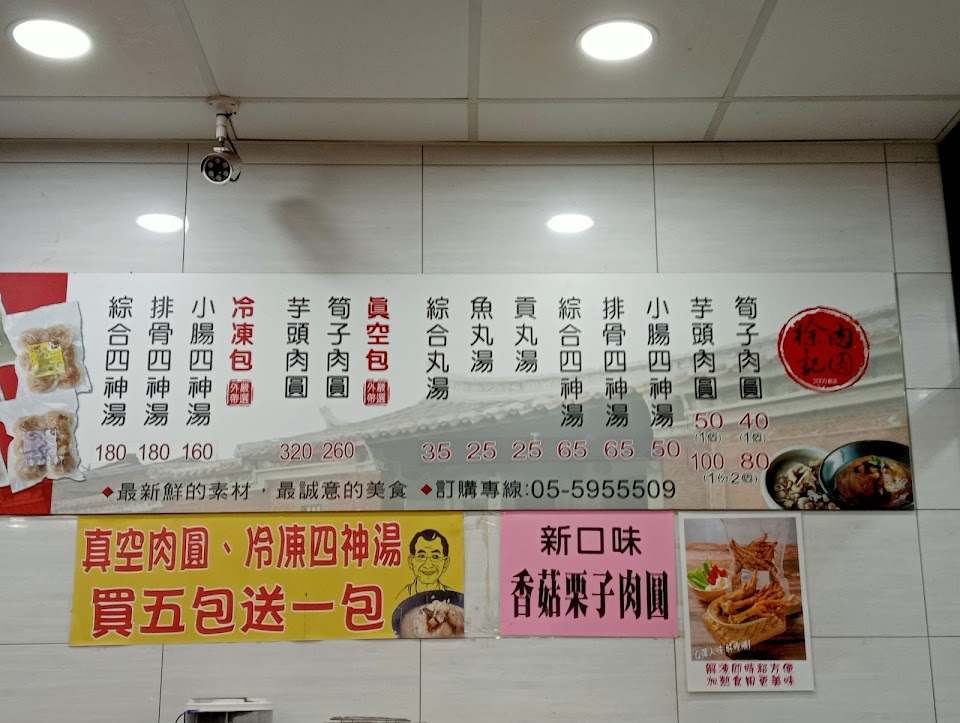 徐記
肉圓
筍子肉圓
40
(1個)
80
芋頭肉圓
50
(1個)
100
(1份2個)
小腸四神湯
50
排骨四神湯
65
綜合四神湯
65
貢丸湯
25
魚丸湯
25
綜合丸湯
35
真空包
嚴選
外帶
筍子肉圓
260
芋頭肉圓
320
冷凍包
嚴選
外帶
小腸四神湯
160
排骨四神湯
180
綜合四神湯
180
◆最新鮮的素材，最誠意的美食 ◆訂購專線:05-5955509
真空肉圓、冷凍四神湯
買五包送一包
新口味
香菇栗子肉圓
解凍即時超方便
加熱食用更美味